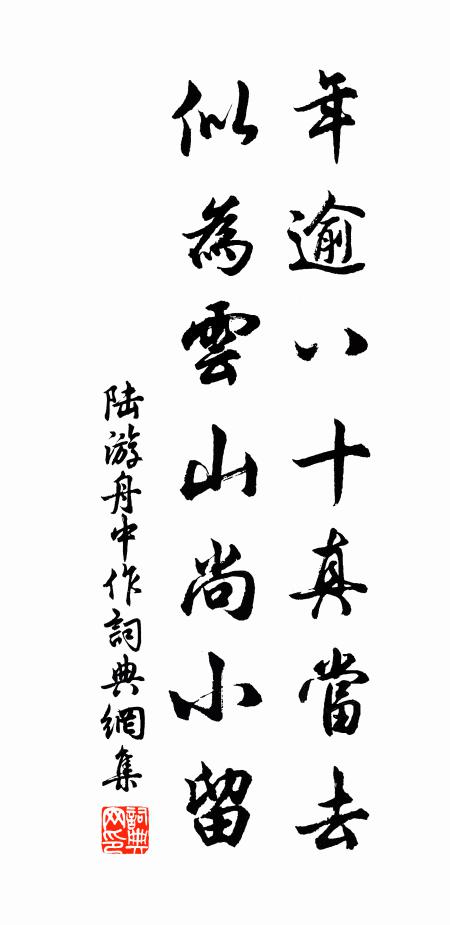 年逾八十真當去
似為雲山尚小留
陆游舟中作詞典網集
詞典网印